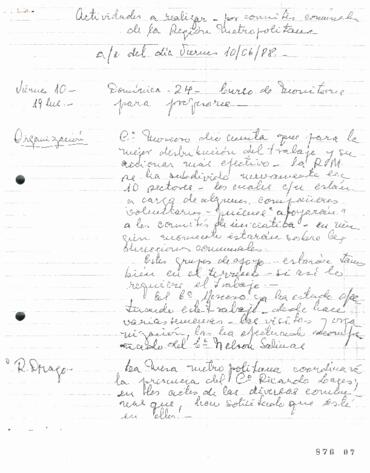 Actividades a realizar - por comités comunales
de la Región Metropolitana
a/c del día Viernes 10/06/88.-
Viernes 10-
19 hrs.-
Domínica - 24 - curso de monitores
para
Organización
Cº Moroso dio cuenta que para la
mejor distribución del trabajo y su
accionar más efectivo - la R.M
se ha subdividido nuevamente en
10 sectores - los cuales c/u están
a cargo de algunos compañeros
voluntarios - quienes "apoyarán"
a los comités de
gún momento estarán sobre las
direcciones comunales.
Estos grupos de apoyo - estarán tam
bién en el terreno - si así lo
requiere el trabajo.-
El Cº Moroso ya ha estado
este trabajo - desde hace
varias semanas - las visitas y orga
nización las ha efectuado acompa
ñado del Cº Nelson Salinas
R. Drago-
La Mesa metropolitana coordinará
la presencia del Cº Ricardo Lagos;
en los actos de las diversas comu
nas que han solicitado que esté
en ellos!-
876 07